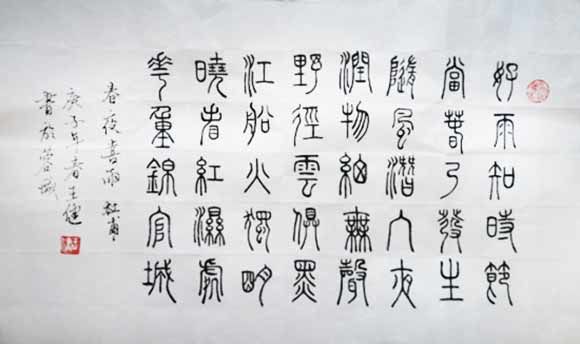 好雨知時節
當春乃發生
隨風潛入夜
潤物細無聲
野徑雲俱黑
江船火獨明
曉看紅濕處
花重錦官城
春夜喜雨 杜甫
庚子年春王健
書於蓉城